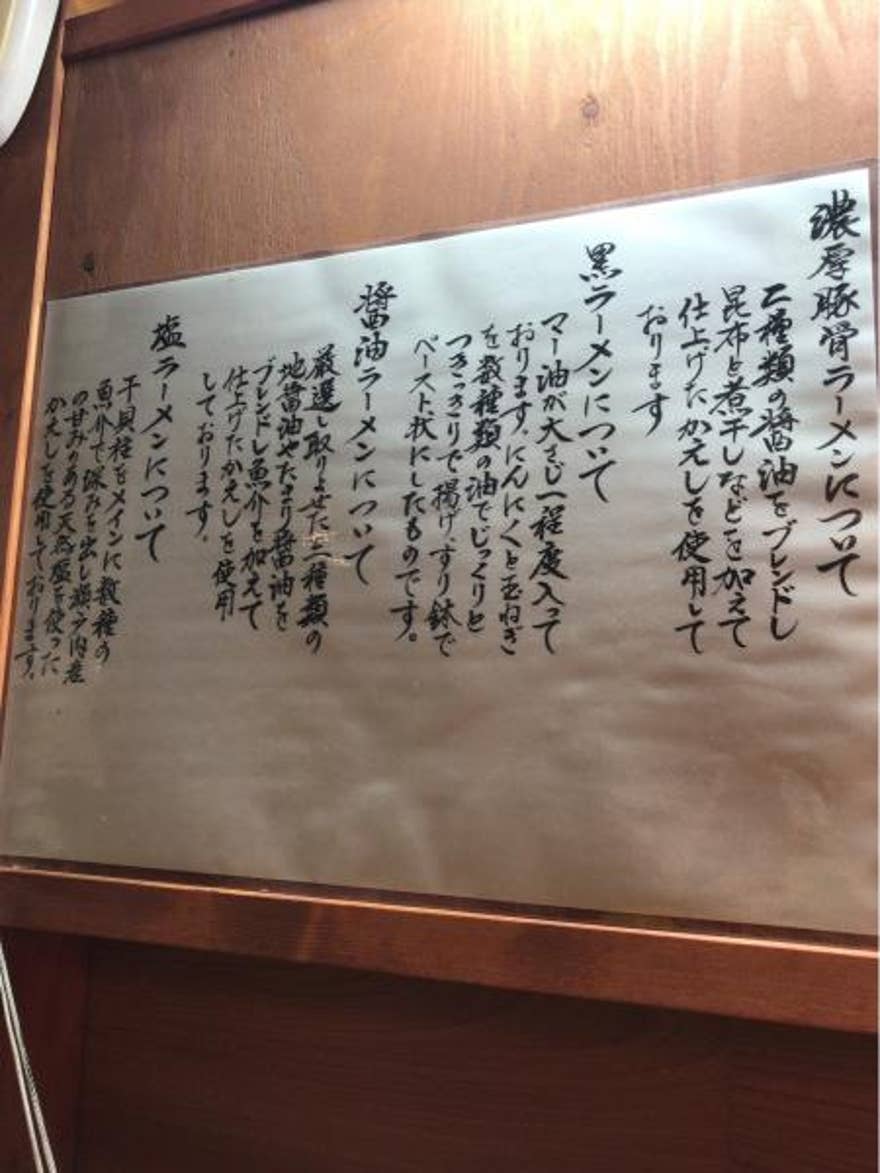 濃厚豚骨ラーメンについて
二種類の醤油をブレンドし
昆布と煮干しなどを加えて
仕上げたかえしを使用して
おります
黒ラーメンについて
マー油が大さじ一程度入って
おります。にんにくと玉ねぎ
を数種類の油でじっくりと
つきっきりで揚げ、すり鉢で
ペースト状にしたものです。
醤油ラーメンについて
厳選し取りよせた二種類の
地醤油やたまり醤油を
ブレンドし魚介を加えて
仕上げたかえしを使用
しております。
塩ラーメンについて
干貝柱をメインに数種の
魚介で深みを出し瀬戸内産
の甘みのある天然塩を使った
かえしを使用しております。